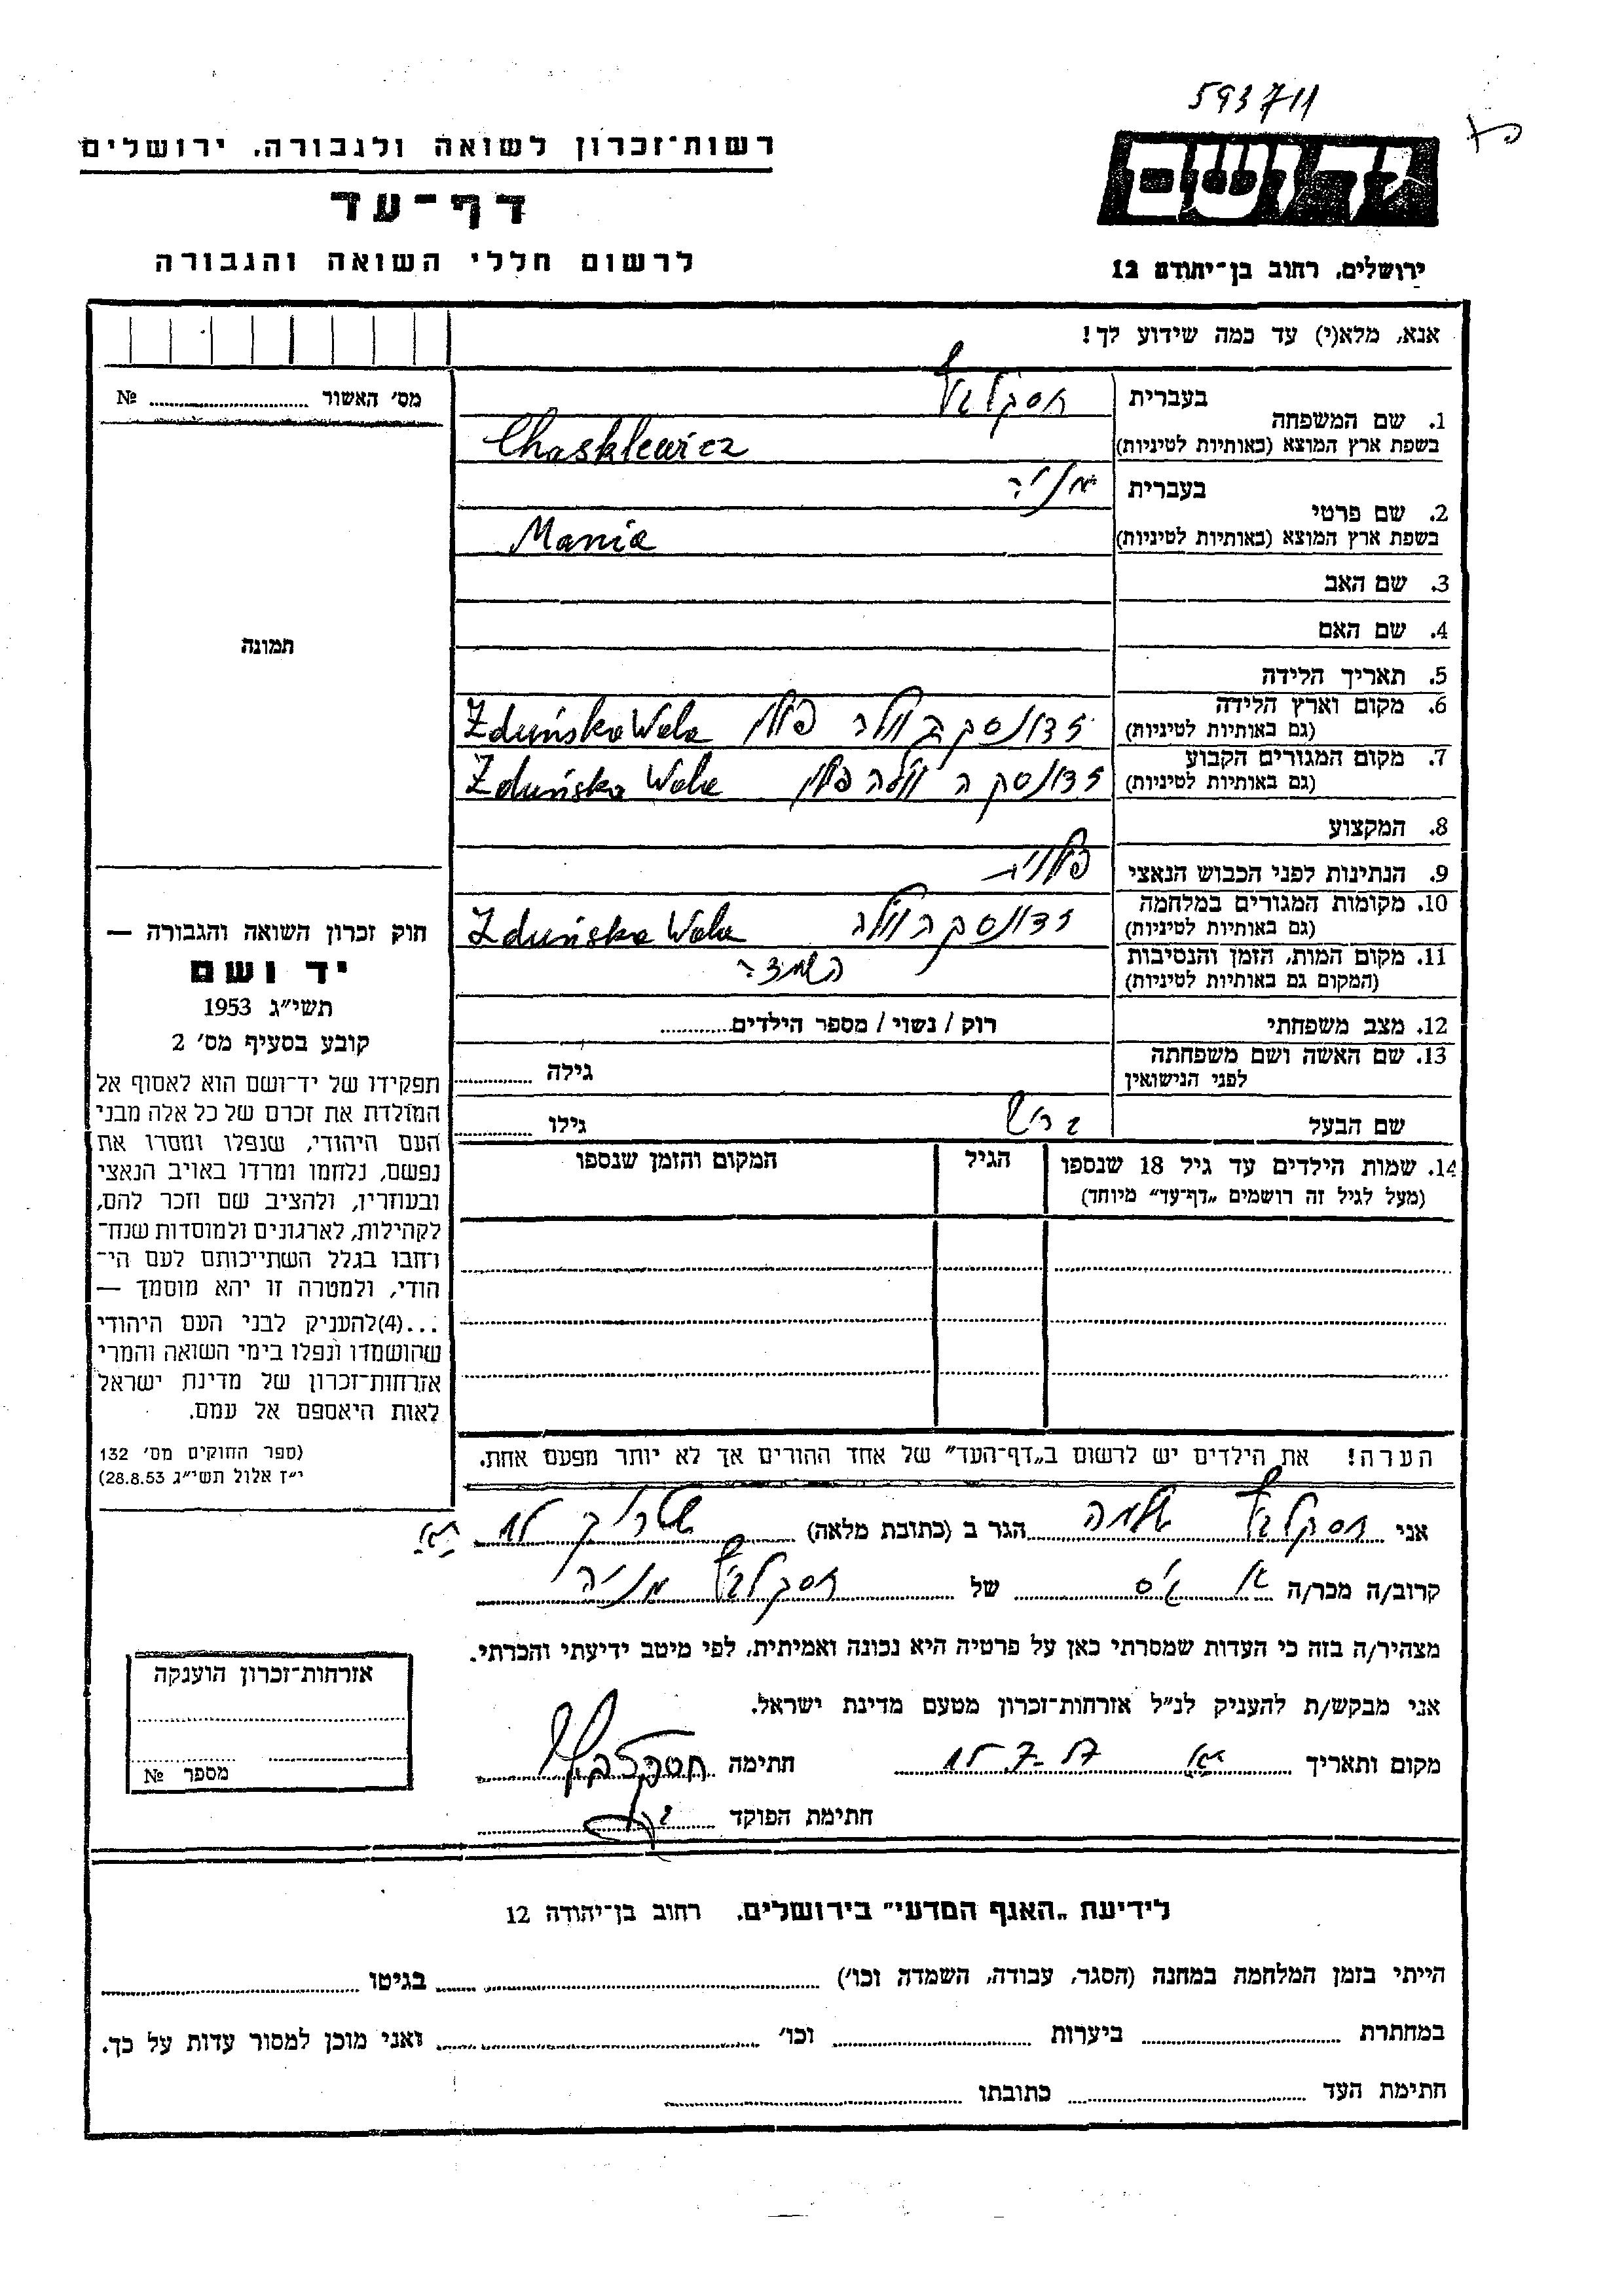 593711
רשות־זכרון לשואה ולגבורה. ירושלים
דף־עד
לרשום חללי השואה והגבורה
יד ושם
ירושלים, רחוב בן־יהודה 12
אנא, מלא(י) עד כמה שידוע לך!
מס׳ האשור ........ №
תמונה
1. שם המשפחה
בעברית חסקלביץ
בשפת ארץ המוצא (באותיות לטיניות) Chasklewicz
2. שם פרטי
בעברית מניה
בשפת ארץ המוצא (באותיות לטיניות) Mania
3. שם האב
4. שם האם
5. תאריך הלידה
6. מקום וארץ הלידה
(גם באותיות לטיניות) זדונסקה וולה פולין Zduńska Wola
7. מקום המגורים הקבוע
(גם באותיות לטיניות) זדונסקה וולה פולין Zduńska Wola
8. המקצוע
9. הנתינות לפני הכבוש הנאצי פולנית
10. מקומות המגורים במלחמה
(גם באותיות לטיניות) זדונסקה וולה Zduńska Wola
11. מקום המות, הזמן והנסיבות
(המקום גם באותיות לטיניות) השמדה
12. מצב משפחתי רוק / נשוי / מספר הילדים........
13. שם האשה ושם משפחתה
לפני הנישואין גילה ........
שם הבעל הרש גילו ........
14. שמות הילדים עד גיל 18 שנספו
(מעל לגיל זה רושמים „דף־עד״ מיוחד)
הגיל
המקום והזמן שנספו
הערה! את הילדים יש לרשום ב„דף־העד״ של אחד ההורים אך לא יותר מפעם אחת.
חוק זכרון השואה והגבורה —
יד ושם
תשי״ג 1953
קובע בסעיף מס׳ 2
תפקידו של יד־ושם הוא לאסוף אל
המולדת את זכרם של כל אלה מבני
העם היהודי, שנפלו ומסרו את
נפשם, נלחמו ומרדו באויב הנאצי
ובעוזריו, ולהציב שם וזכר להם,
לקהילות, לארגונים ולמוסדות שנח־
רחבו בגלל השתייכותם לעם הי־
הודי, ולמטרה זו יהא מוסמך —
...(4)להעניק לבני העם היהודי
שהושמדו ונפלו בימי השואה והמרי
אזרחות־זכרון של מדינת ישראל
לאות היאספם אל עמם.
(ספר החוקים מס׳ 132
י״ז אלול תשי״ג 28.8.53)
אני חסקלביץ שלמה הגר ב (כתובת מלאה) 15
קרוב/ה מכר/ה גיס של חסקלביץ מניה
מצהיר/ה בזה כי העדות שמסרתי כאן על פרטיה היא נכונה ואמיתית, לפי מיטב ידיעתי והכרתי.
אני מבקש/ת להעניק לנ״ל אזרחות־זכרון מטעם מדינת ישראל.
מקום ותאריך חתימה חסקלביץ
חתימת הפוקד
אזרחות־זכרון הוענקה
מספר №
לידיעת „האגף המדעי״ בירושלים, רחוב בן־יהודה 12
הייתי בזמן המלחמה במחנה (הסגר, עבודה, השמדה וכו׳) ........ בגיטו ........
במחתרת ........ ביערות ........ וכו׳ ........ ואני מוכן למסור עדות על כך.
חתימת העד ........ כתובתו ........